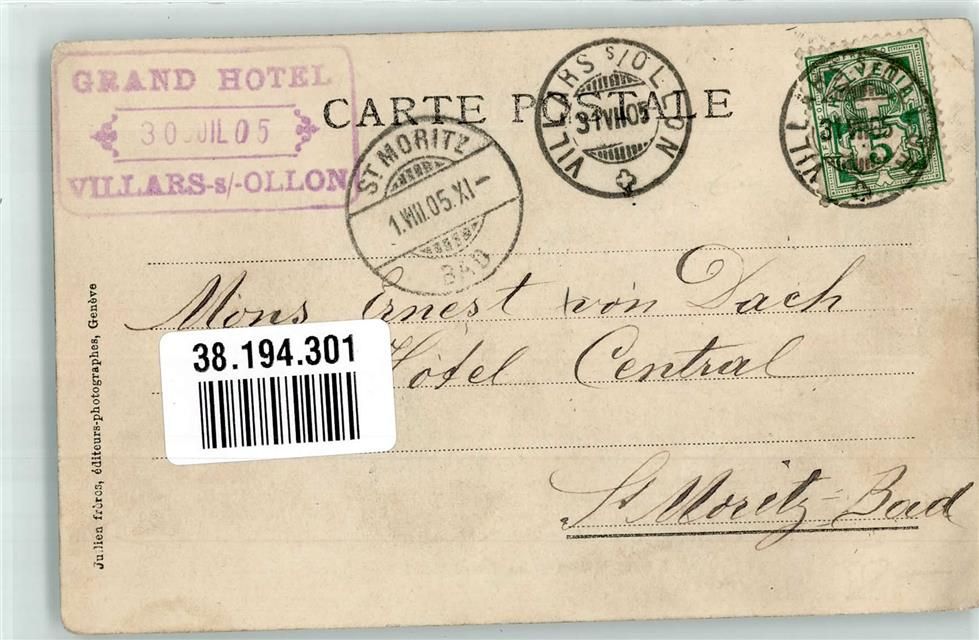 GRAND HOTEL
30 JUIL 05
VILLARS-s/-OLLON
CARTE POSTALE
ST MORITZ
1.VIII.05.XI-
BAD
VILLARS s/OLLON
31 VII 05
VILLARS
31 VII 05
5
Mons Ernest von Dach
Hôtel Central
St Moritz-Bad
38.194.301
Jullien frères, éditeurs-photographes, Genève